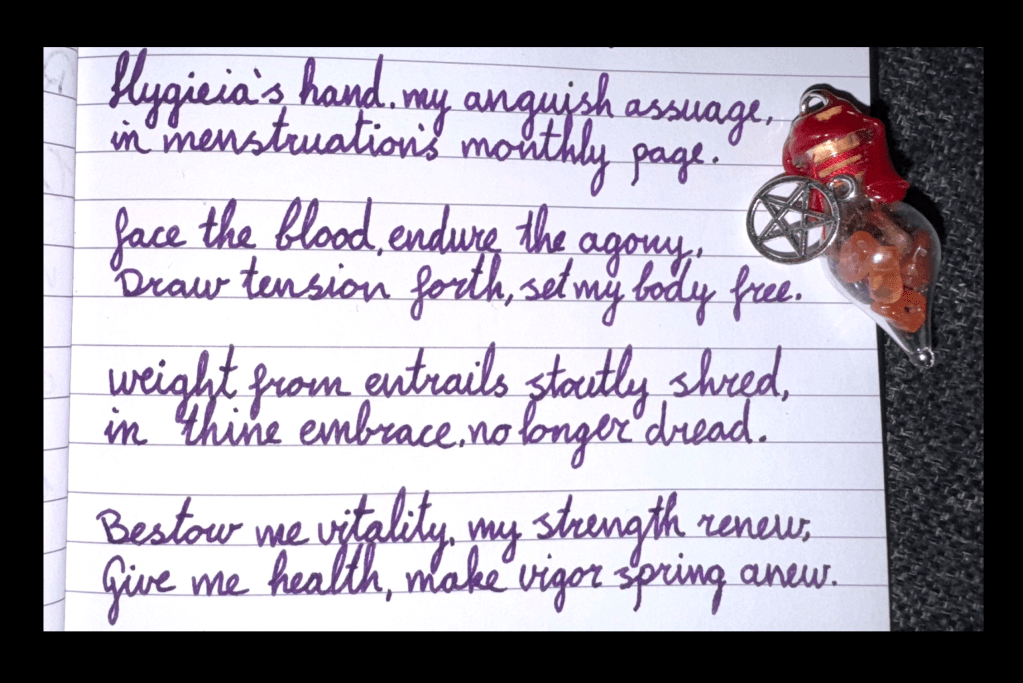 Hygieia's hand, my anguish assuage,
in menstruation's monthly page.
face the blood, endure the agony,
Draw tension forth, set my body free.
weight from entrails stoutly shred,
in thine embrace, no longer dread.
Bestow me vitality, my strength renew,
Give me health, make vigor spring anew.